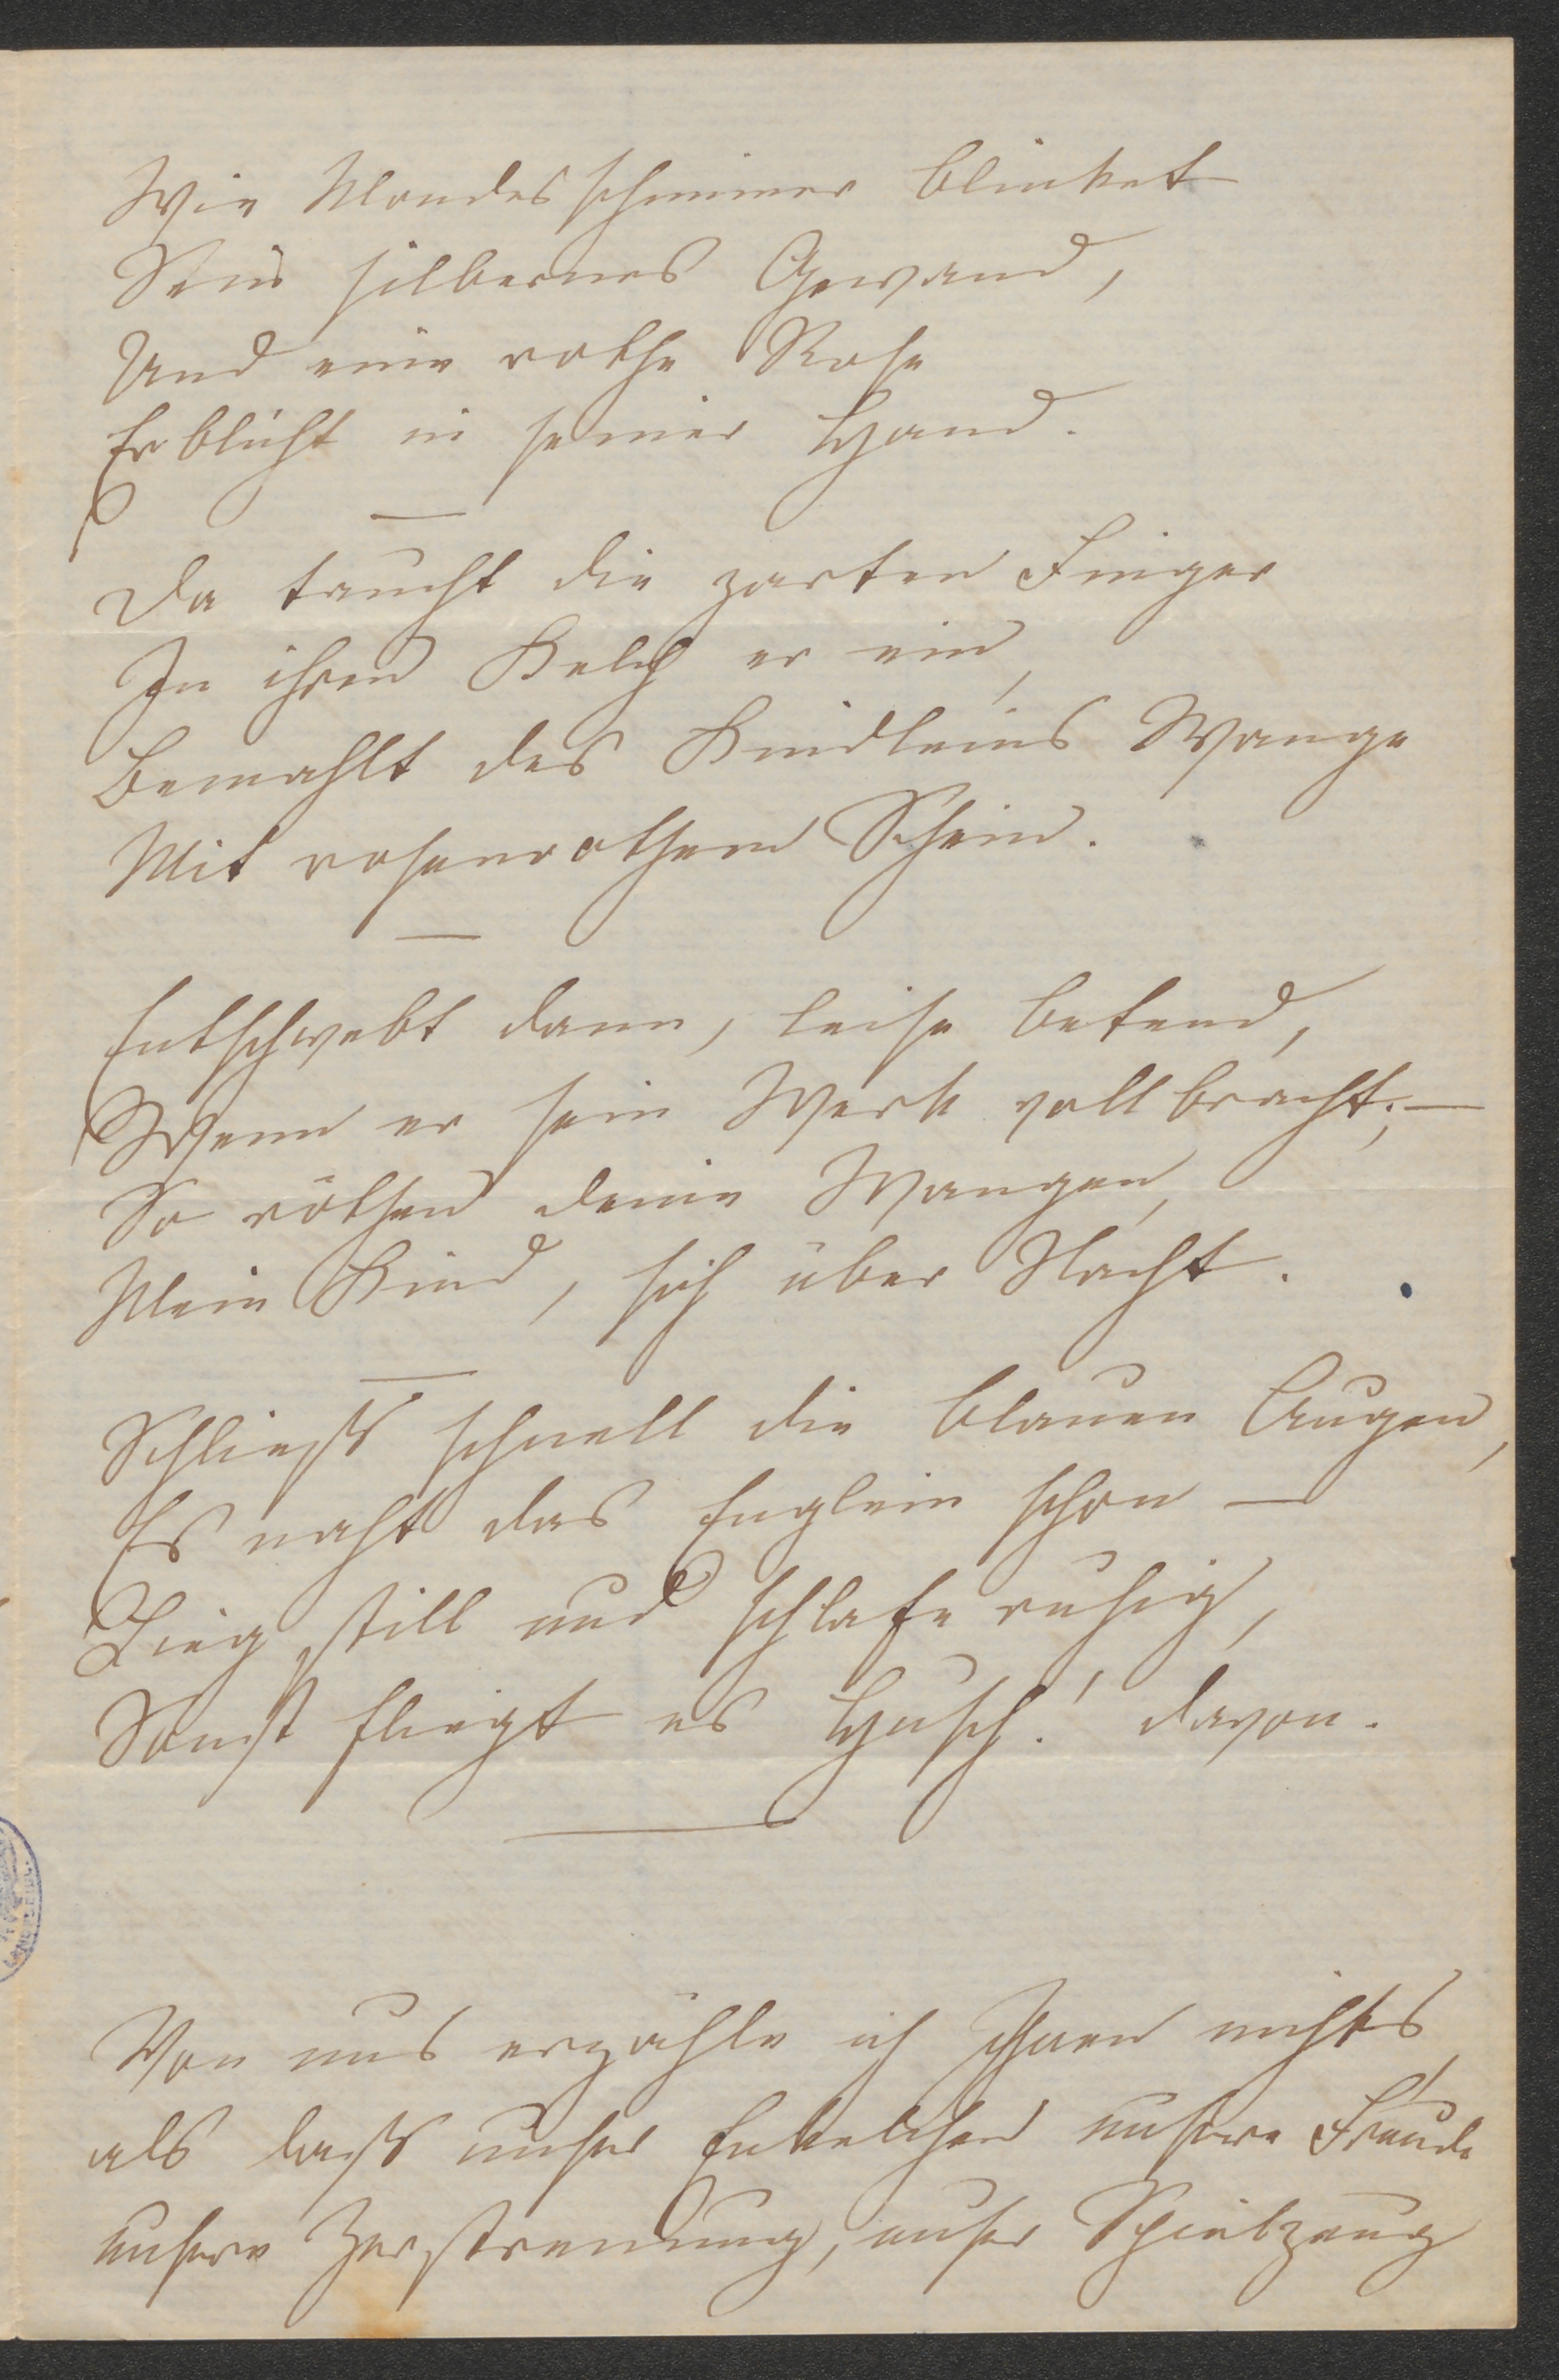 Wie Mondesschimmer blinket
Sein silbernes Gewand,
Und eine rothe Rose
Erblüht in seiner Hand.
Da taucht die zarten Finger
In ihren Kelch er ein,
Bemahlt des Kindleins Wange
Mit rosenrothem Schein.
Entschwebt dann, leise betend,
Wenn er sein Werk vollbracht; —
So röthen deine Wangen,
Mein Kind, sich über Nacht.
Schließ schnell die blauen Augen,
Es naht das Englein schon —
Lieg still und schlafe ruhig,
Sonst fliegt es husch! davon.
Von uns erzähle ich Ihnen nichts,
als daß unser Enkelchen unsere Freude
unsere Zerstreuung, unser Spielzeug